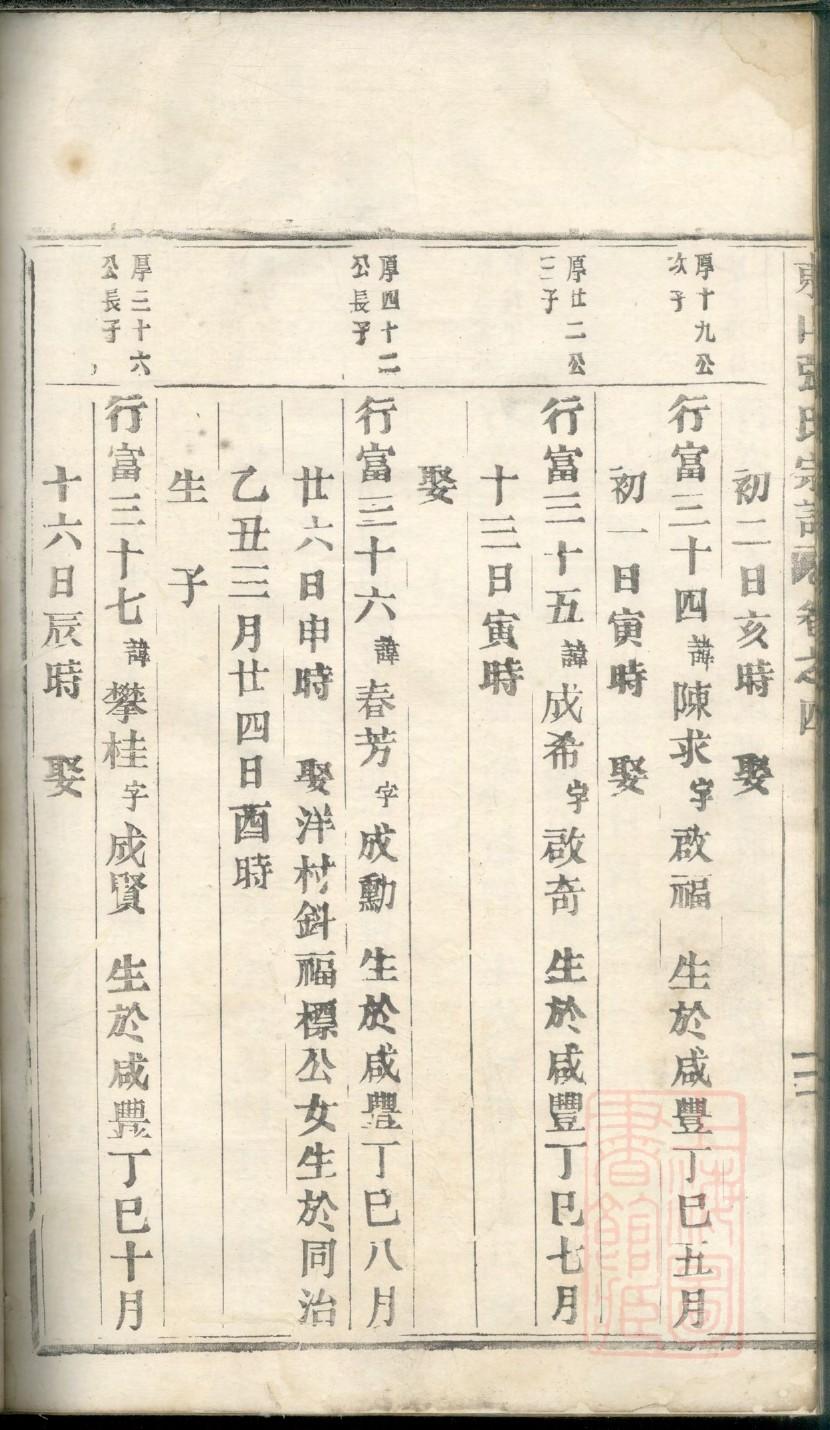 東山張氏宗譜 卷之四 三
初二日亥時 娶
厚十九公次子
行富三十四諱陳求字啟福 生於咸豐丁巳五月
初一日寅時 娶
厚廿二公三子
行富三十五諱成希字啟奇 生於咸豐丁巳七月
十三日寅時
娶
厚四十二公長子
行富三十六諱春芳字成勳 生於咸豐丁巳八月
廿六日申時 娶洋村斜福標公女生於同治
乙丑三月廿四日酉時
生 子
厚三十六公長子
行富三十七諱攀桂字成賢 生於咸豐丁巳十月
十六日辰時 娶